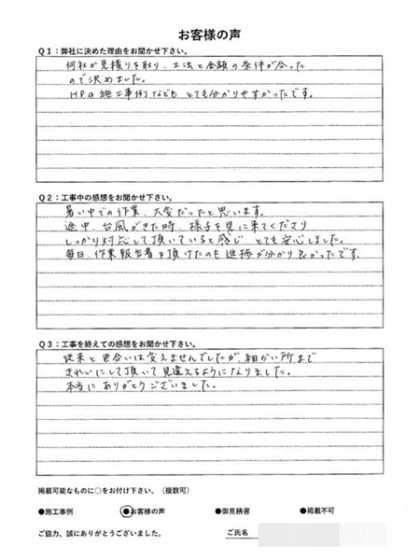 お客様の声
Q1：弊社に決めた理由をお聞かせ下さい。
何社か見積りを取り、工法と金額の条件が合った
ので決めました。
HPの施工事例なども とても分かりやすかったです。
Q2：工事中の感想をお聞かせ下さい。
暑い中での作業、大変だったと思います。
途中、台風がきた時、様子を見に来てくださり
しっかり対応して頂いていると感じ とても安心しました。
毎日、作業報告書を頂けたのも進捗が分かり良かったです。
Q3：工事を終えての感想をお聞かせ下さい。
従来と色合いは変えませんでしたが、細かい所まで
きれいにして頂いて見違えるようになりました。
本当にありがとうございました。
掲載可能なものに○をお付け下さい。（複数可）
●施工事例 ●お客様の声 ●御見積書 ●掲載不可
ご協力、誠にありがとうございました。 ご氏名